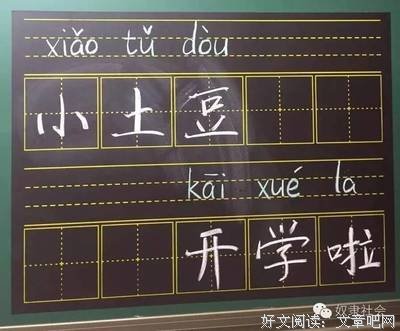 xiǎo tǔ dòu
小土豆
kāi xué la
开学啦
奴隶社会
好文阅读：文章吧网